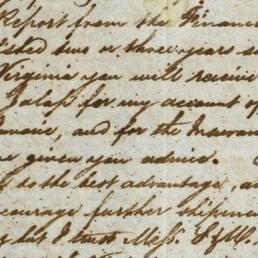 Report from the Financ
lished two or three years s
Virginia you will receive
for my account of
and for the Insuran
given you advice.
to the best advantage, an
courage further shipmen
but I trust Mess.